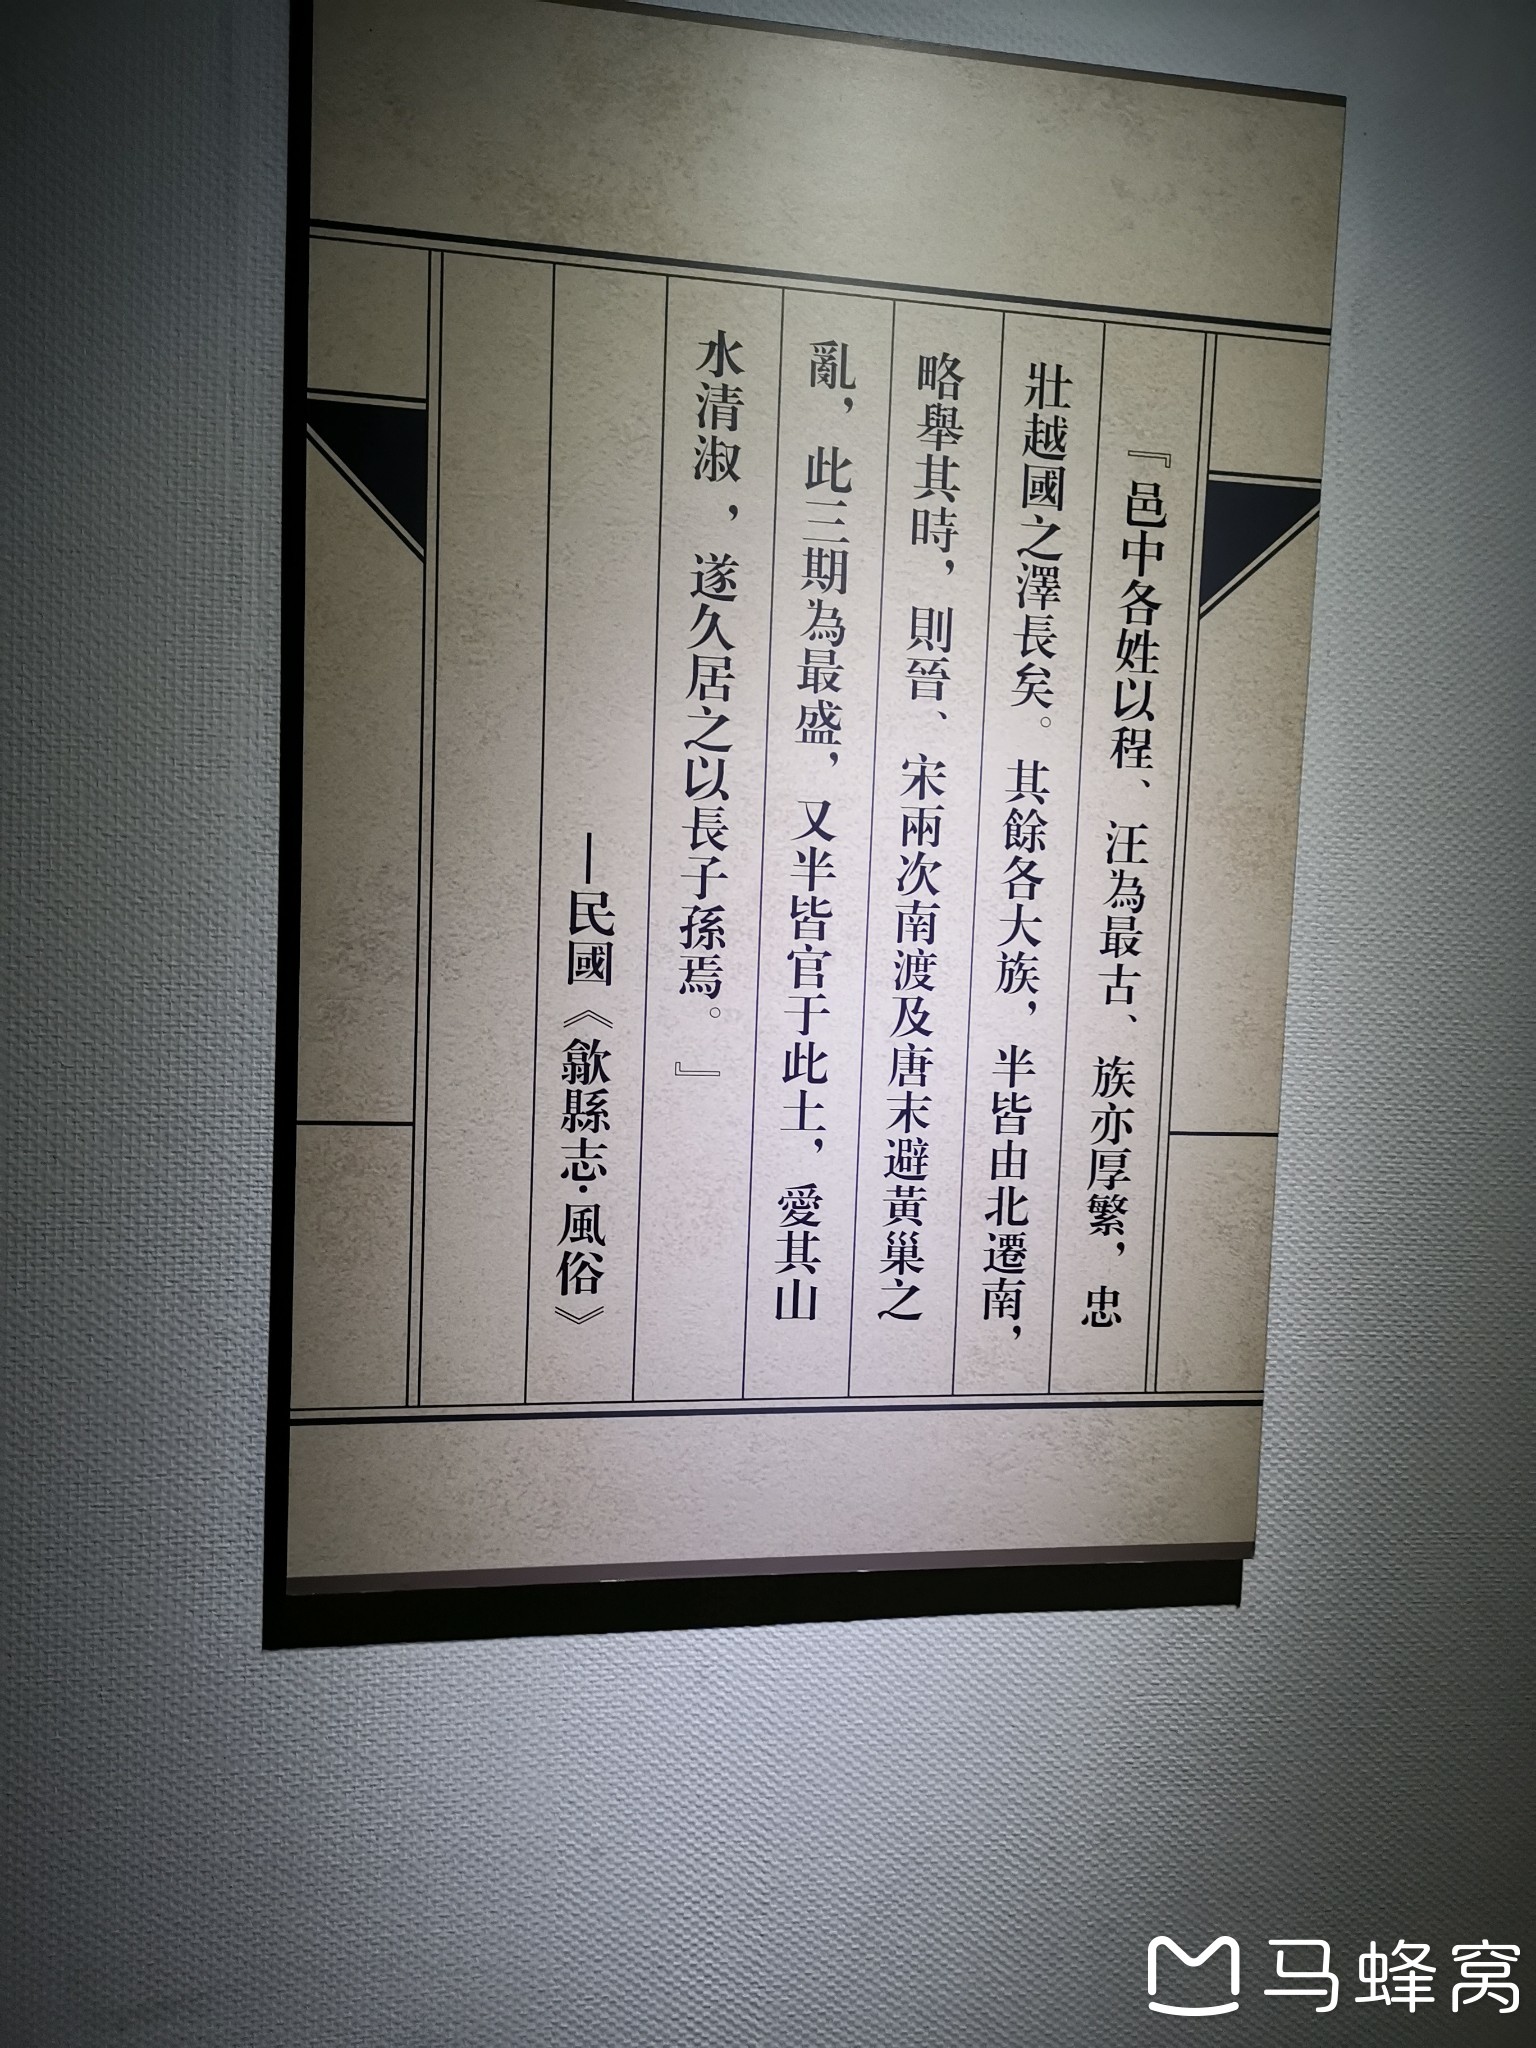 『邑中各姓以程、汪為最古、族亦厚繁，忠
壯越國之澤長矣。其餘各大族，半皆由北遷南，
略舉其時，則晉、宋兩次南渡及唐末避黃巢之
亂，此三期為最盛，又半皆官于此土，愛其山
水清淑，遂久居之以長子孫焉。』
—民國《歙縣志·風俗》
马蜂窝